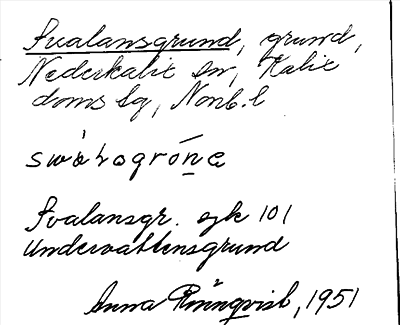 Svalansgrund, grund,
Nederkalix sn, Kalix
doms sg, Norrb. l
Svalansgr. ejk 101
Undervattensgrund
Anna Rönnqvist, 1951